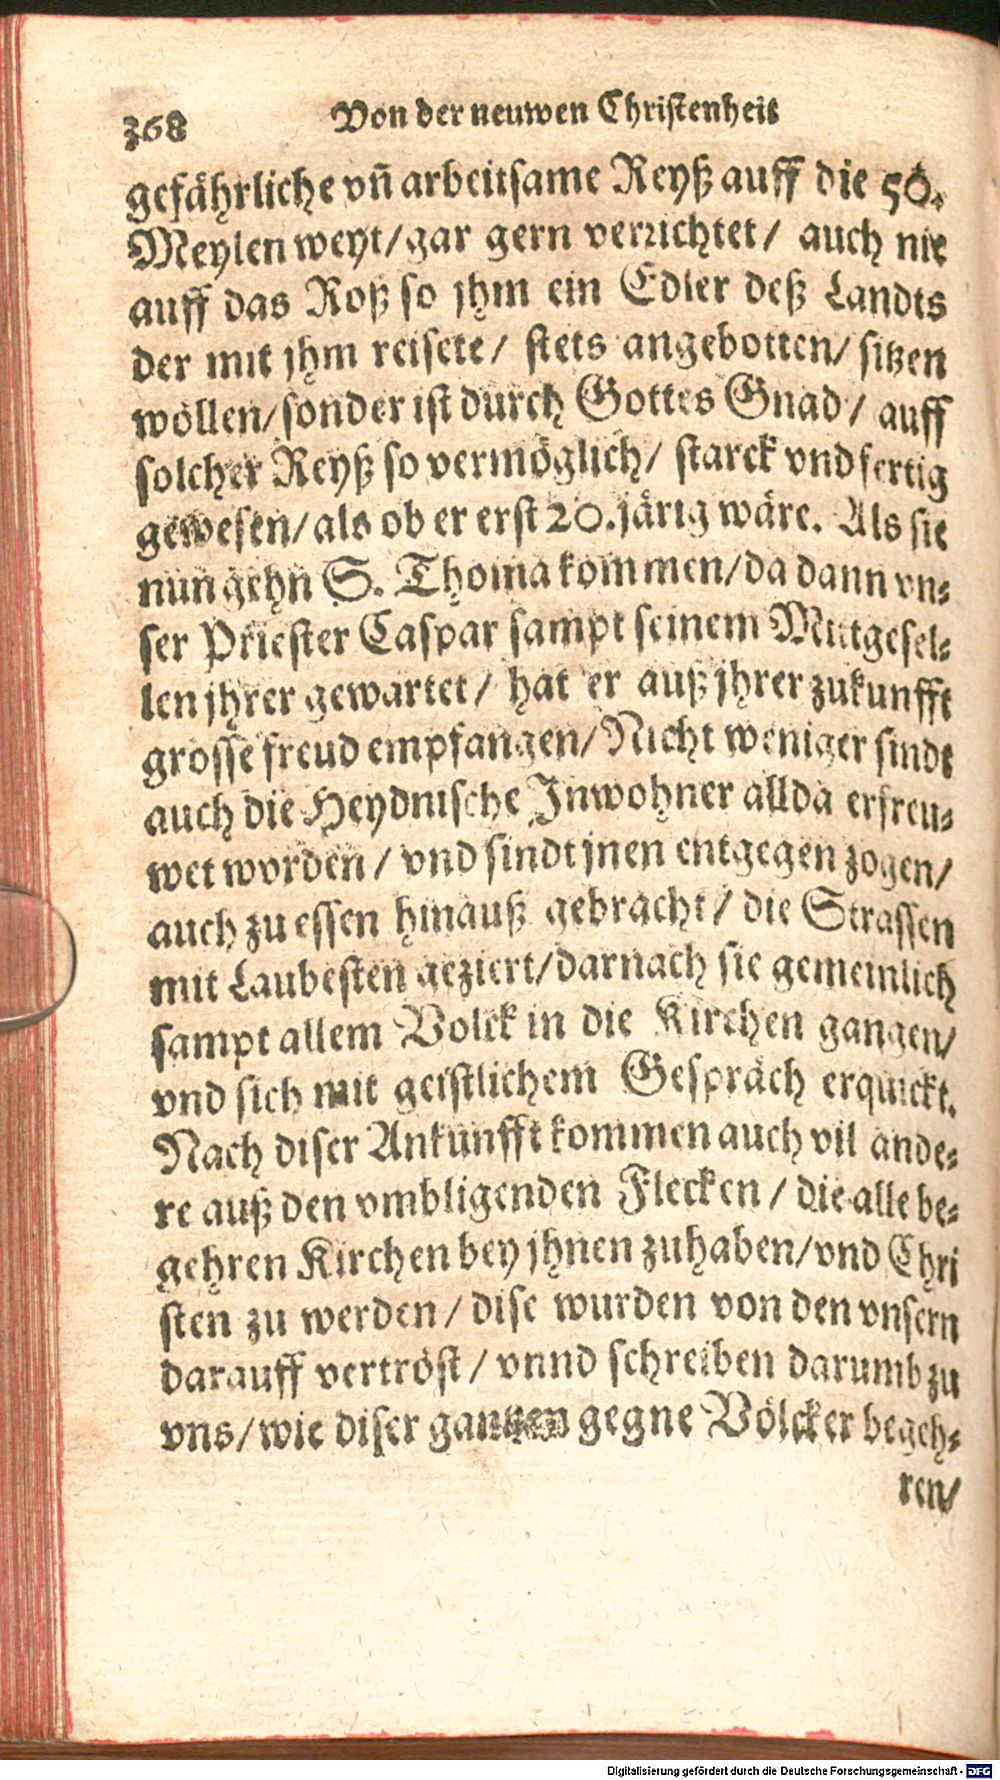 368 Von der neuwen Christenheit
gefährliche vn̄ arbeitsame Reyß auff die 50.
Meylen weyt/gar gern verrichtet/ auch nie
auff das Roß so jhm ein Edler deß Landts
der mit jhm reisete/ stets angebotten/ sitzen
wöllen/sonder ist durch Gottes Gnad/ auff
solcher Reyß so vermöglich/ starck vnd fertig
gewesen/als ob er erst 20.järig wäre. Als sie
nun gehn S. Thoma kommen/da dann vn⸗
ser Priester Caspar sampt seinem Mitgesel⸗
len jhrer gewartet/ hat er auß jhrer zukunfft
grosse freud empfangen/Nicht weniger sindt
auch die Heydnische Inwohner allda erfreu⸗
wet worden/ vnd sindt jnen entgegen zogen/
auch zu essen hinauß gebracht/ die Strassen
mit Laubesten geziert/darnach sie gemeinlich
sampt allem Volck in die Kirchen gangen/
vnd sich mit geistlichem Gespräch erquickt.
Nach diser Ankunfft kommen auch vil ande⸗
re auß den vmbligenden Flecken/ die alle be⸗
gehren Kirchen bey jhnen zuhaben/vnd Chri
sten zu werden/ dise wurden von den vnsern
darauff vertröst/ vnnd schreiben darumb zu
vns/wie diser gantzen gegne Völcker begeh⸗
ren/
Digitalisierung gefördert durch die Deutsche Forschungsgemeinschaft - DFG